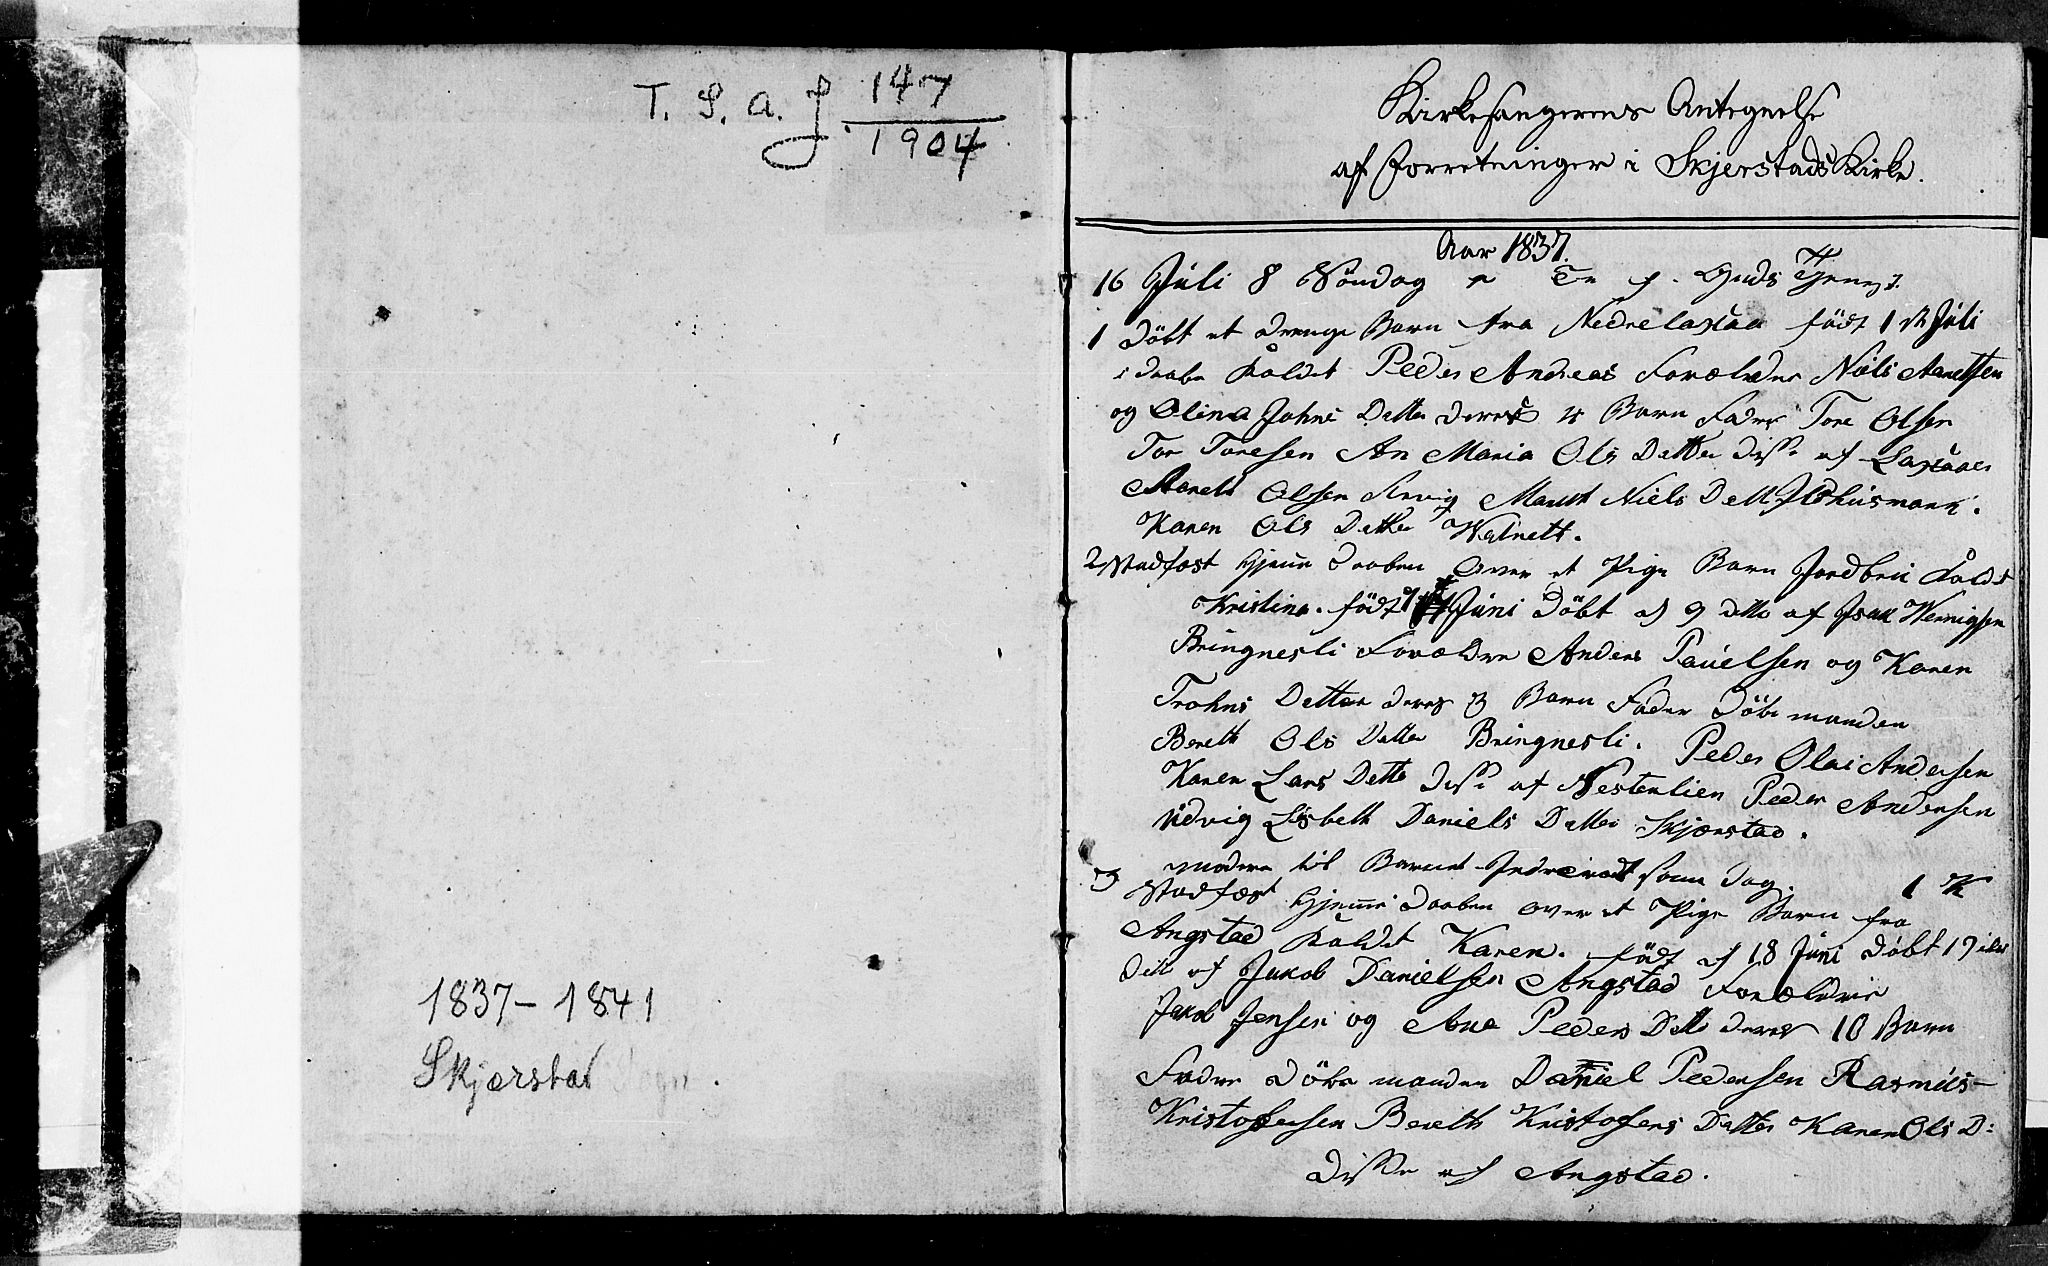 T. S. A. J. 147
1904
1837 – 1841
Skjærstad Sogn.
Kirkesangerens Antegnelse
af Forretninger i Skjerstads Kirke.
Aar 1837.
16 Juli 8 Söndag p Tr f. Guds Tjenest
1 Döbt et Drenge Barn fra Nedrelaxaa födt 1 Juli
i daabe kaldet Peder Andreas Forældre Niels Arentsen
og Olina Johns Detter deres Barn Fadre Tore Olsen
Tor Toresen An Maria Ols Detter disse af Laxaaen
Arent Olsen Marett Niels Dett
Karen Ols Detter Watnett.
2 Stadfæst Hjemme Daaben over et Pige Barn Jordbrü kaldt
Kristina. födt Juni Döbt d 9 dette af Isak Wernigsen
Bringnesli Forældre Anders Pauelsen og Karen
Trohns Detter deres 3 Barn Fader Döbe manden
Bereth Ols Datter Bringnesli. Peder Olai Andersen
Karen Lars Dette disse af Nestenlien Peder Andersen
Üdvig Lisbeth Daniels Datter Skjærstad.
modern til Barnet Indreirodt samme dag. 1 K
3 Stadfæst Hjemme Daaben over et Pige Barn fra
Angstad kaldet Karen. födt d 18 Juni Döbt 19
dito af Jakob Danielsen Angstad Forældrene
Jakob Jensen og Ane Peders Dtt deres 10 Barn
Fadre Döbe manden Daniel Pedersen Rasmüs
Kristofersen Bereth Kristofers Datter Karen Ols D:
Disse af Angstad.